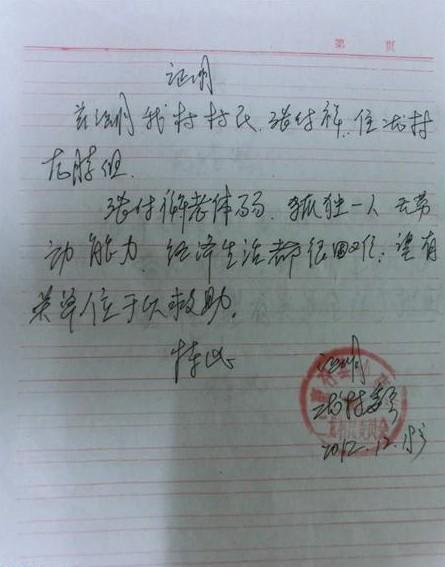 第 页
证明
兹证明我村村民张付祥,住我村
龙腾组.
张付祥老体弱.孤独一人 无劳
动能力.经济生活都很困难,望有
关单位于以救助.
特此
证明
2012.12.